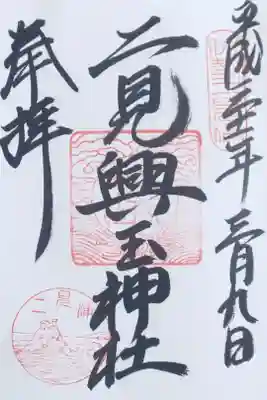 平成二十五年三月九日
二見興玉神社
奉拝
二見浦